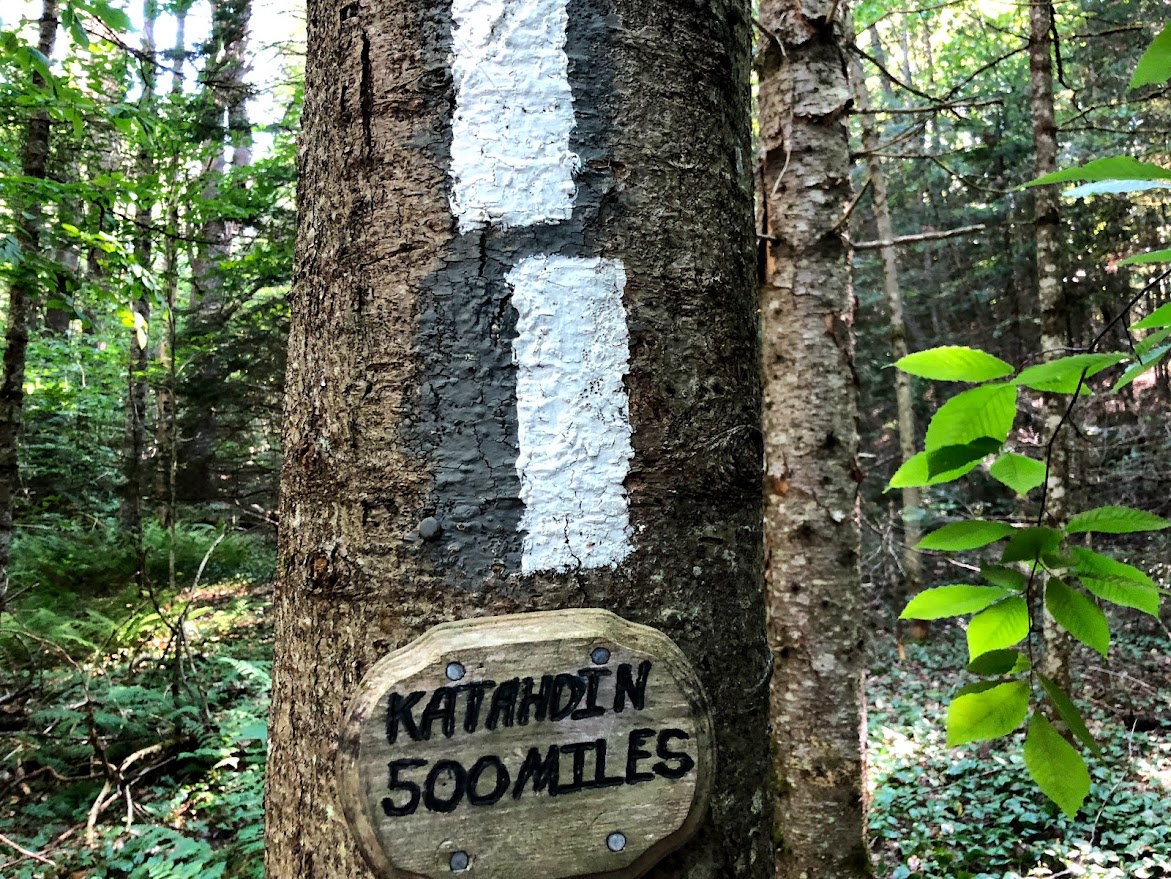 KATAHDIN
500 MILES